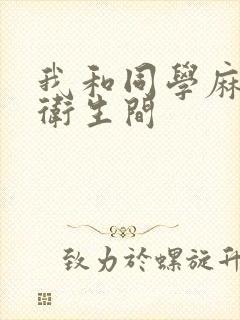 我和同學麻
衛生間
致力於螺旋升